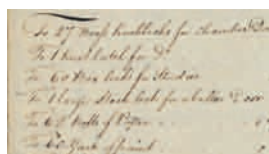 To 27 Brass Knoblocks for chamber Do
To 1 Knob Latch for Do.
To 60 Box locks for
To 1 large Stock lock for a Cellar Door
To 62 Rolls of Paper
To 60 Yards of